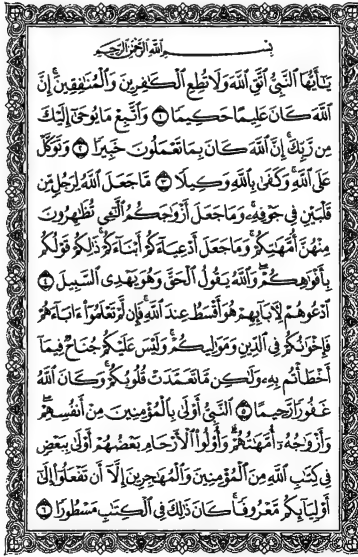 بِسْمِ ٱللَّهِ ٱلرَّحْمَٰنِ ٱلرَّحِيمِ
يَٰٓأَيُّهَا ٱلنَّبِيُّ ٱتَّقِ ٱللَّهَ وَلَا تُطِعِ ٱلْكَٰفِرِينَ وَٱلْمُنَٰفِقِينَ ۗ إِنَّ
ٱللَّهَ كَانَ عَلِيمًا حَكِيمًا ١ وَٱتَّبِعْ مَا يُوحَىٰٓ إِلَيْكَ
مِن رَّبِّكَ ۚ إِنَّ ٱللَّهَ كَانَ بِمَا تَعْمَلُونَ خَبِيرًا ٢ وَتَوَكَّلْ
عَلَى ٱللَّهِ ۚ وَكَفَىٰ بِٱللَّهِ وَكِيلًا ٣ مَّا جَعَلَ ٱللَّهُ لِرَجُلٍ مِّن
قَلْبَيْنِ فِي جَوْفِهِۦ ۚ وَمَا جَعَلَ أَزْوَٰجَكُمُ ٱلَّٰٓـِٔي تُظَٰهِرُونَ
مِنْهُنَّ أُمَّهَٰتِكُمْ ۚ وَمَا جَعَلَ أَدْعِيَآءَكُمْ أَبْنَآءَكُمْ ۚ ذَٰلِكُمْ قَوْلُكُم
بِأَفْوَٰهِكُمْ ۖ وَٱللَّهُ يَقُولُ ٱلْحَقَّ وَهُوَ يَهْدِي ٱلسَّبِيلَ ٤
ٱدْعُوهُمْ لِأٓبَآئِهِمْ هُوَ أَقْسَطُ عِندَ ٱللَّهِ ۚ فَإِن لَّمْ تَعْلَمُوٓا۟ ءَابَآءَهُمْ
فَإِخْوَٰنُكُمْ فِي ٱلدِّينِ وَمَوَٰلِيكُمْ ۚ وَلَيْسَ عَلَيْكُمْ جُنَاحٌ فِيمَآ
أَخْطَأْتُم بِهِۦ وَلَٰكِن مَّا تَعَمَّدَتْ قُلُوبُكُمْ ۚ وَكَانَ ٱللَّهُ
غَفُورًا رَّحِيمًا ٥ ٱلنَّبِيُّ أَوْلَىٰ بِٱلْمُؤْمِنِينَ مِنْ أَنفُسِهِمْ ۖ
وَأَزْوَٰجُهُۥٓ أُمَّهَٰتُهُمْ ۗ وَأُو۟لُوا۟ ٱلْأَرْحَامِ بَعْضُهُمْ أَوْلَىٰ بِبَعْضٍ
فِي كِتَٰبِ ٱللَّهِ مِنَ ٱلْمُؤْمِنِينَ وَٱلْمُهَٰجِرِينَ إِلَّآ أَن تَفْعَلُوٓا۟ إِلَىٰٓ
أَوْلِيَآئِكُم مَّعْرُوفًا ۚ كَانَ ذَٰلِكَ فِي ٱلْكِتَٰبِ مَسْطُورًا ٦